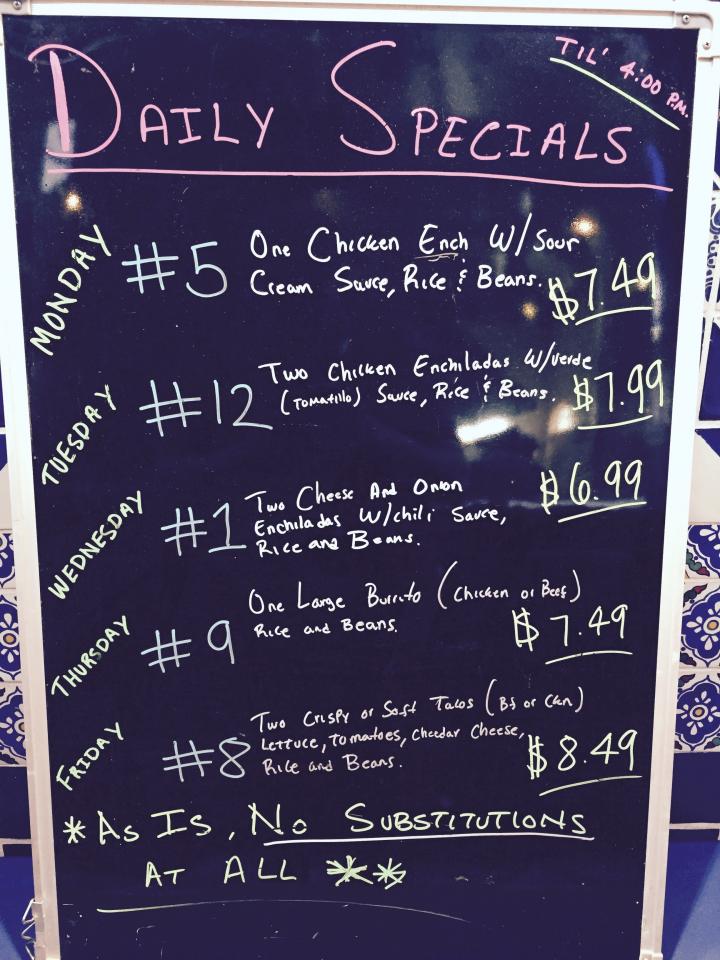 DAILY SPECIALS
TIL' 4:00 P.M.
MONDAY
#5
One Chicken Ench W/Sour
Cream Sauce, Rice & Beans.
$7.49
TUESDAY
#12
Two Chicken Enchiladas W/verde
(Tomatillo) Sauce, Rice & Beans.
$7.99
WEDNESDAY
#1
Two Cheese And Onion
Enchiladas W/chili Sauce,
Rice and Beans.
$6.99
THURSDAY
#9
One Large Burrito (Chicken or Beef)
Rice and Beans.
$7.49
FRIDAY
#8
Two Crispy or Soft Tacos (Bf or Ckn)
Lettuce, Tomatoes, Cheddar Cheese,
Rice and Beans.
$8.49
*AS IS, NO SUBSTITUTIONS
AT ALL **